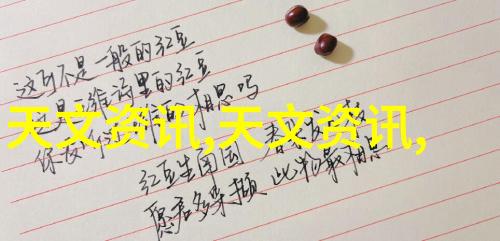 这可不是一般的红豆
这是
里的红豆
相思吗
天文资讯,天文资讯,
红豆生南国 春来发
愿君多采撷 此物最相思